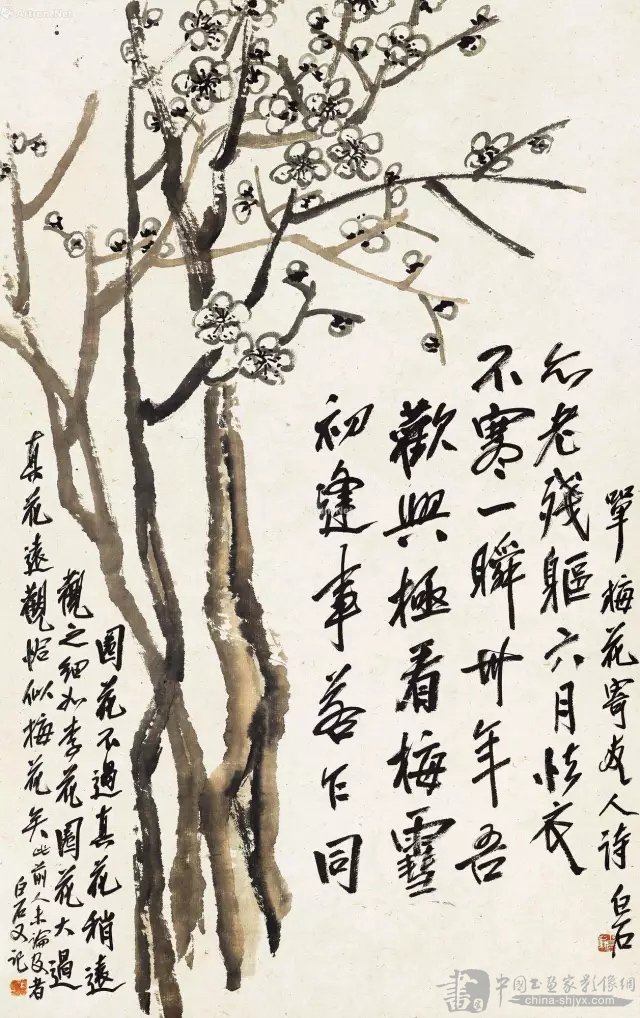 Artron.Net
初逢事若乍同
歡興極看梅雪
不寒一瞬卅年吾
尒老殘軀六月怯衣
單梅花寄友人詩 白石
圖花不過真花稍遠
觀之細如李花圖花大過
真花遠觀恰似梅花矣此前人未論及者
白石又記
中国书画家影像網
china-shjyx.com